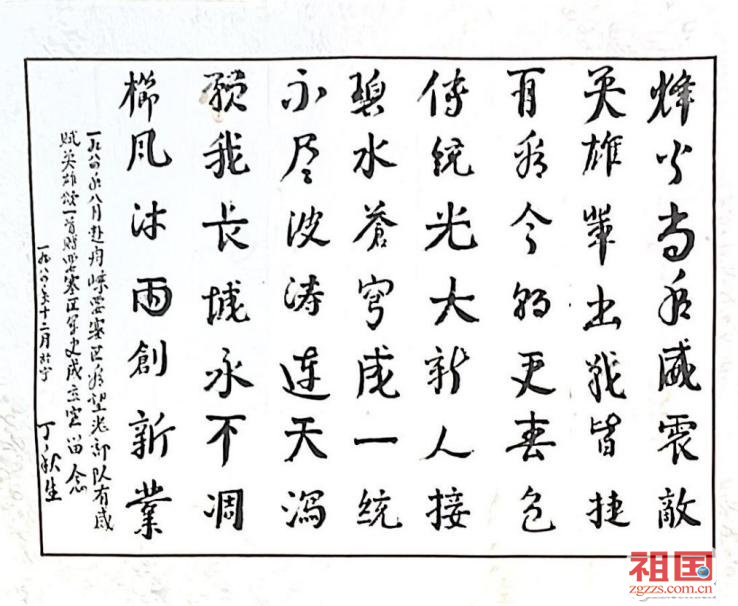 烽火当年威震敌
英雄辈出战皆捷
且看今朝更春色
传统光大新人接
碧水苍穹成一统
不尽波涛连天泻
愿我长城永不凋
栉风沐雨創新業
一九八四年八月赴舟嵊要塞区看望老部队有感
赋英雄颂一首赠要塞区军史成立室留念
一九八四年十二月於宁
丁秋生
祖国
zgzzs.com.cn